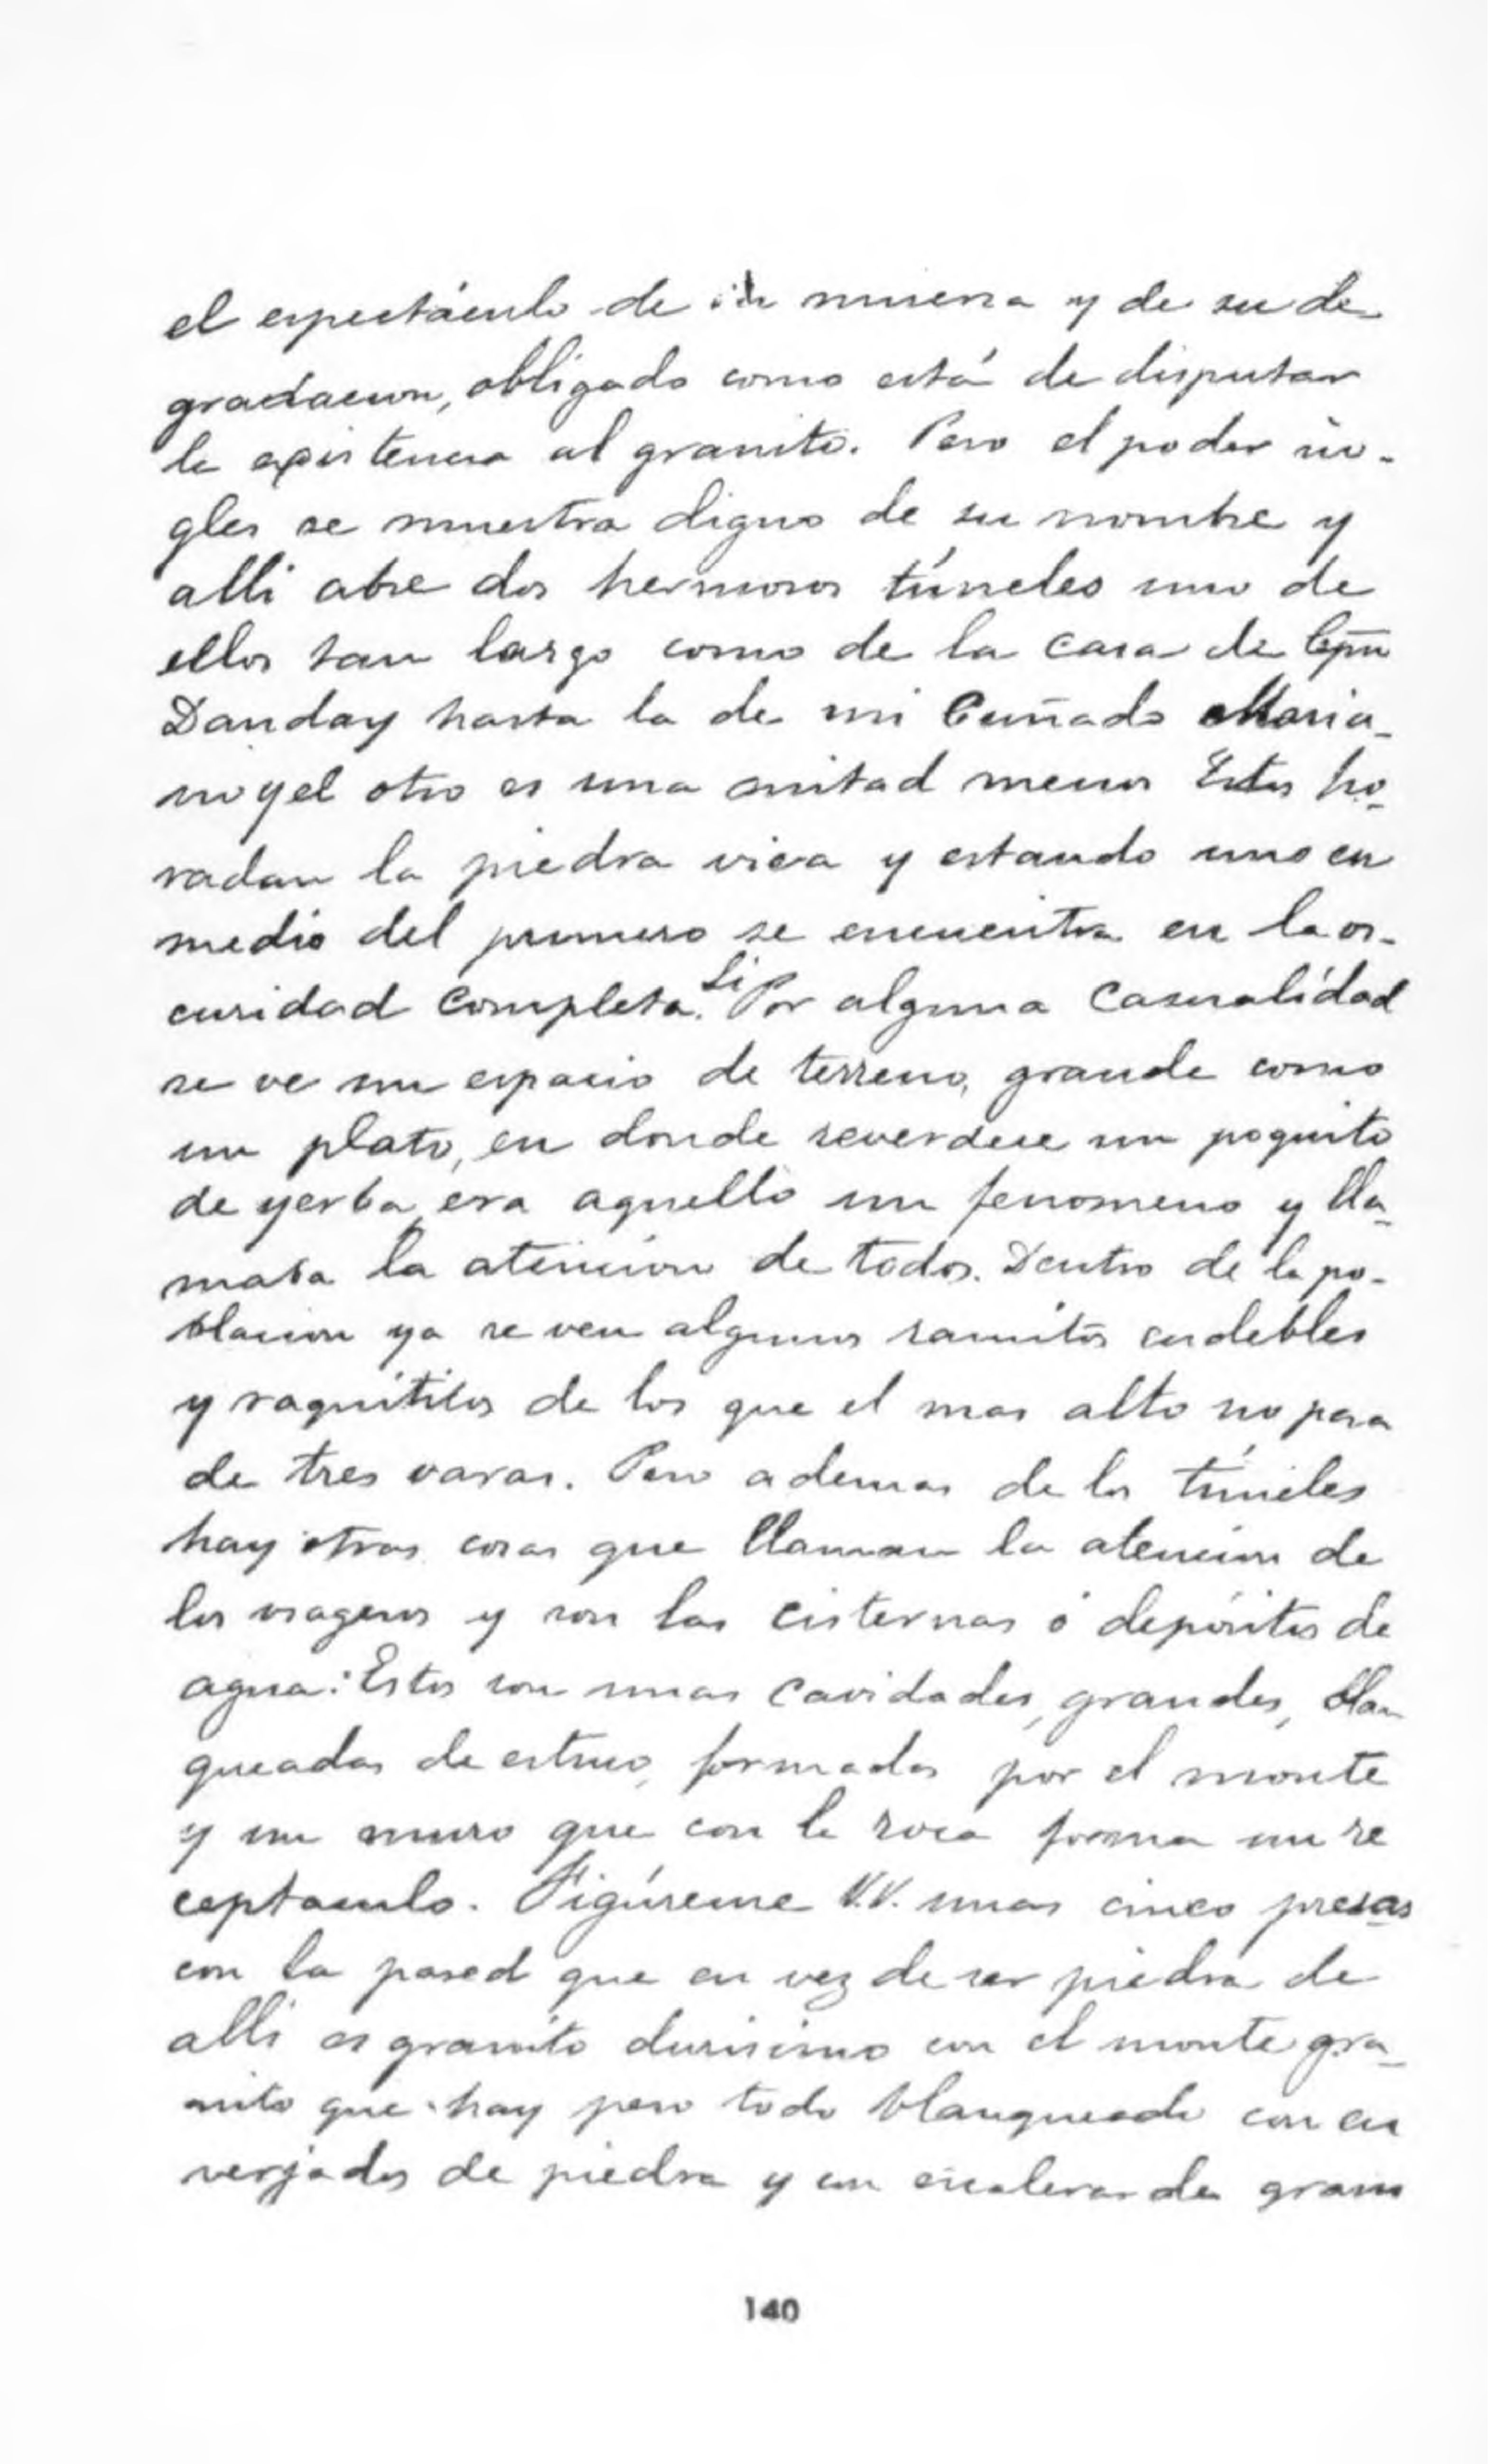 el espectáculo de su miseria y de su de-
gradacion, obligado como está de disputar
la existencia al granito. Pero el poder in-
gles se muestra digno de su nombre y
alli abre dos hermosos túneles uno de
ellos tan largo como de la casa de Cpn
Danday hasta la de mi Cuñado Maria-
no y el otro es una mitad menor Estos ho-
radan la piedra viva y estando uno en
medio del primero se encuentra en la os-
curidad completa. Si Por alguna Casualidad
se ve un espacio de terreno, grande como
un plato, en donde reverdece un poquito
de yerba, era aquello un fenomeno y lla-
maba la atencion de todos. Dentro de la po-
blacion ya se ven algunos ramitos endebles
y raquíticos de los que el mas alto no pasa
de tres varas. Pero ademas de los túneles
hay otras cosas que llaman la atencion de
los viageros y son las cisternas ó depósitos de
agua: Estos son unas cavidades, grandes, blan
queadas de estuco, formadas por el monte
y un muro que con la roca forma un re
ceptaculo. Figúrense V.V. unas cinco presas
con la pared que en vez de ser piedra de
alli es granito durisimo con el monte gra-
nito que hay pero todo blanqueado con en
verjados de piedra y con escaleras de grani
140